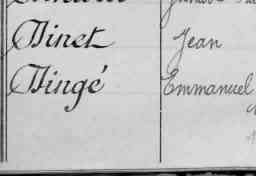 Dinet Jean
Dingé Emmanuel